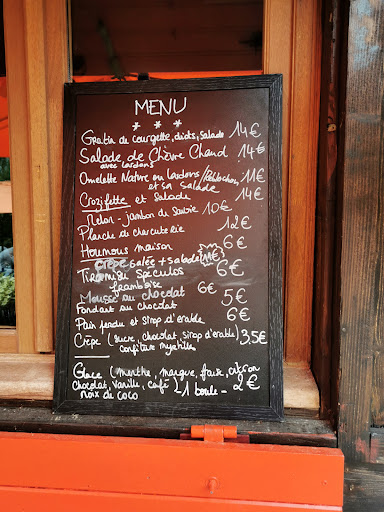 MENU
* * *
Gratin de courgette, diots, salade 14€
Salade de Chèvre Chaud 14€
avec lardons
Omelette Nature ou lardons/Reblochon, 11€
et sa salade
Crozifette et Salade 14€
Melon - jambon de Savoie 10€
Planche de charcuterie 12€
Houmous maison 6€
Crêpe salée + salade 11€
Tiramisu Spéculos 6€
framboise
Mousse au chocolat 6€
Fondant au chocolat 5€
Pain perdu et sirop d'érable 6€
Crêpe (sucre, chocolat, sirop d'érable) 3.5€
confiture myrtilles
Glace (menthe, mangue, fraise, citron
Chocolat, Vanille, café) - 1 boule - 2€
noix de coco